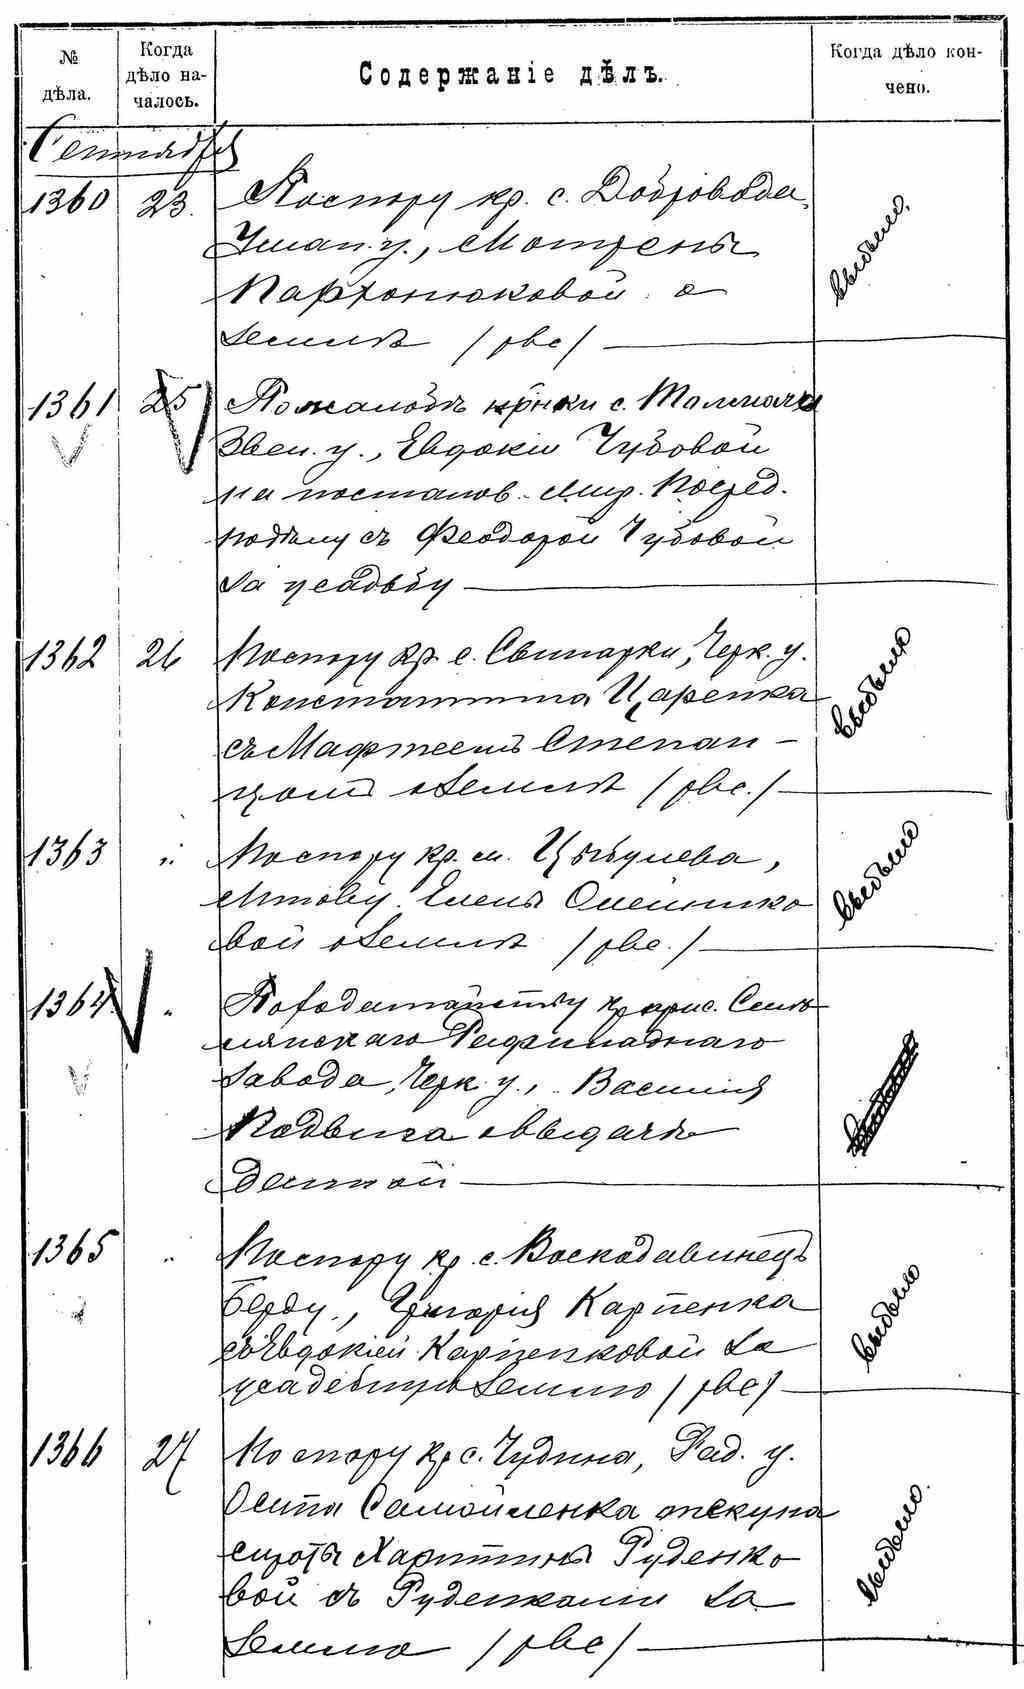 № дѣла.
Когда дѣло началось.
Содержаніе дѣлъ.
Когда дѣло кончено.
Сентября
1360 23. По спору кр. с. Доброводъ,
Уман. у., Мотрены
Парфонюковой о
землѣ /рве/
выбыло.
1361 25 По жалобѣ кр–нки с.
Звен. у., Евдокіи Чубовой
на постанов. Мир. Посред.
по дѣлу съ Феодорой Чубовой
за усадьбу
1362 26 По спору кр. с. Свинарки, Черк. у.
Константина Царенка
съ Мафтеемъ Степан–
цомъ о землѣ /рве./
выбыло
1363 " По спору кр. м. Цыбулева,
Липов. у. Елены Олейнико
вой о землѣ /рве./
выбыло
1364 " По ходатайству кр–рис. Смѣ
лянскаго Рафинаднаго
завода, Черк. у., Василія
Подвига о выдачѣ
данной
1365 " По спору кр. с. Воскодавинецъ
Берд. у., Григорія Карпенка
съ Евдокіей Карпенковой за
усадебную землю /рве/
выбыло
1366 27 По спору кр. с. Чудина, Рад. у.
Осипа Самойленка опекуна
сироты Харитины Руденко
вой съ Руденками за
землю /рве/
выбыло.